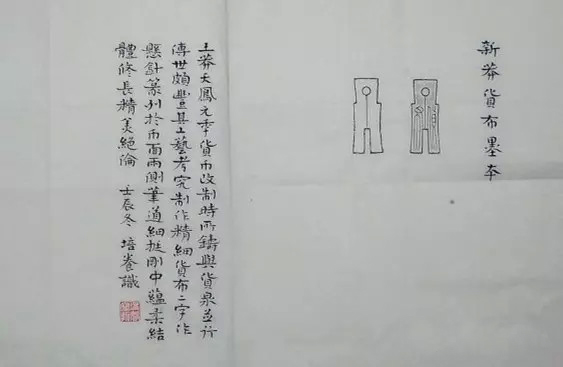 新莽貨布墨本
王莽天鳳元年貨币改制時所鑄與貨泉並行
傳世頗豐其工藝考究制作精細貨布二字作
懸針篆列於币面兩側筆道細挺剛中蘊柔結
體修長精美絕倫 壬辰冬 培養識